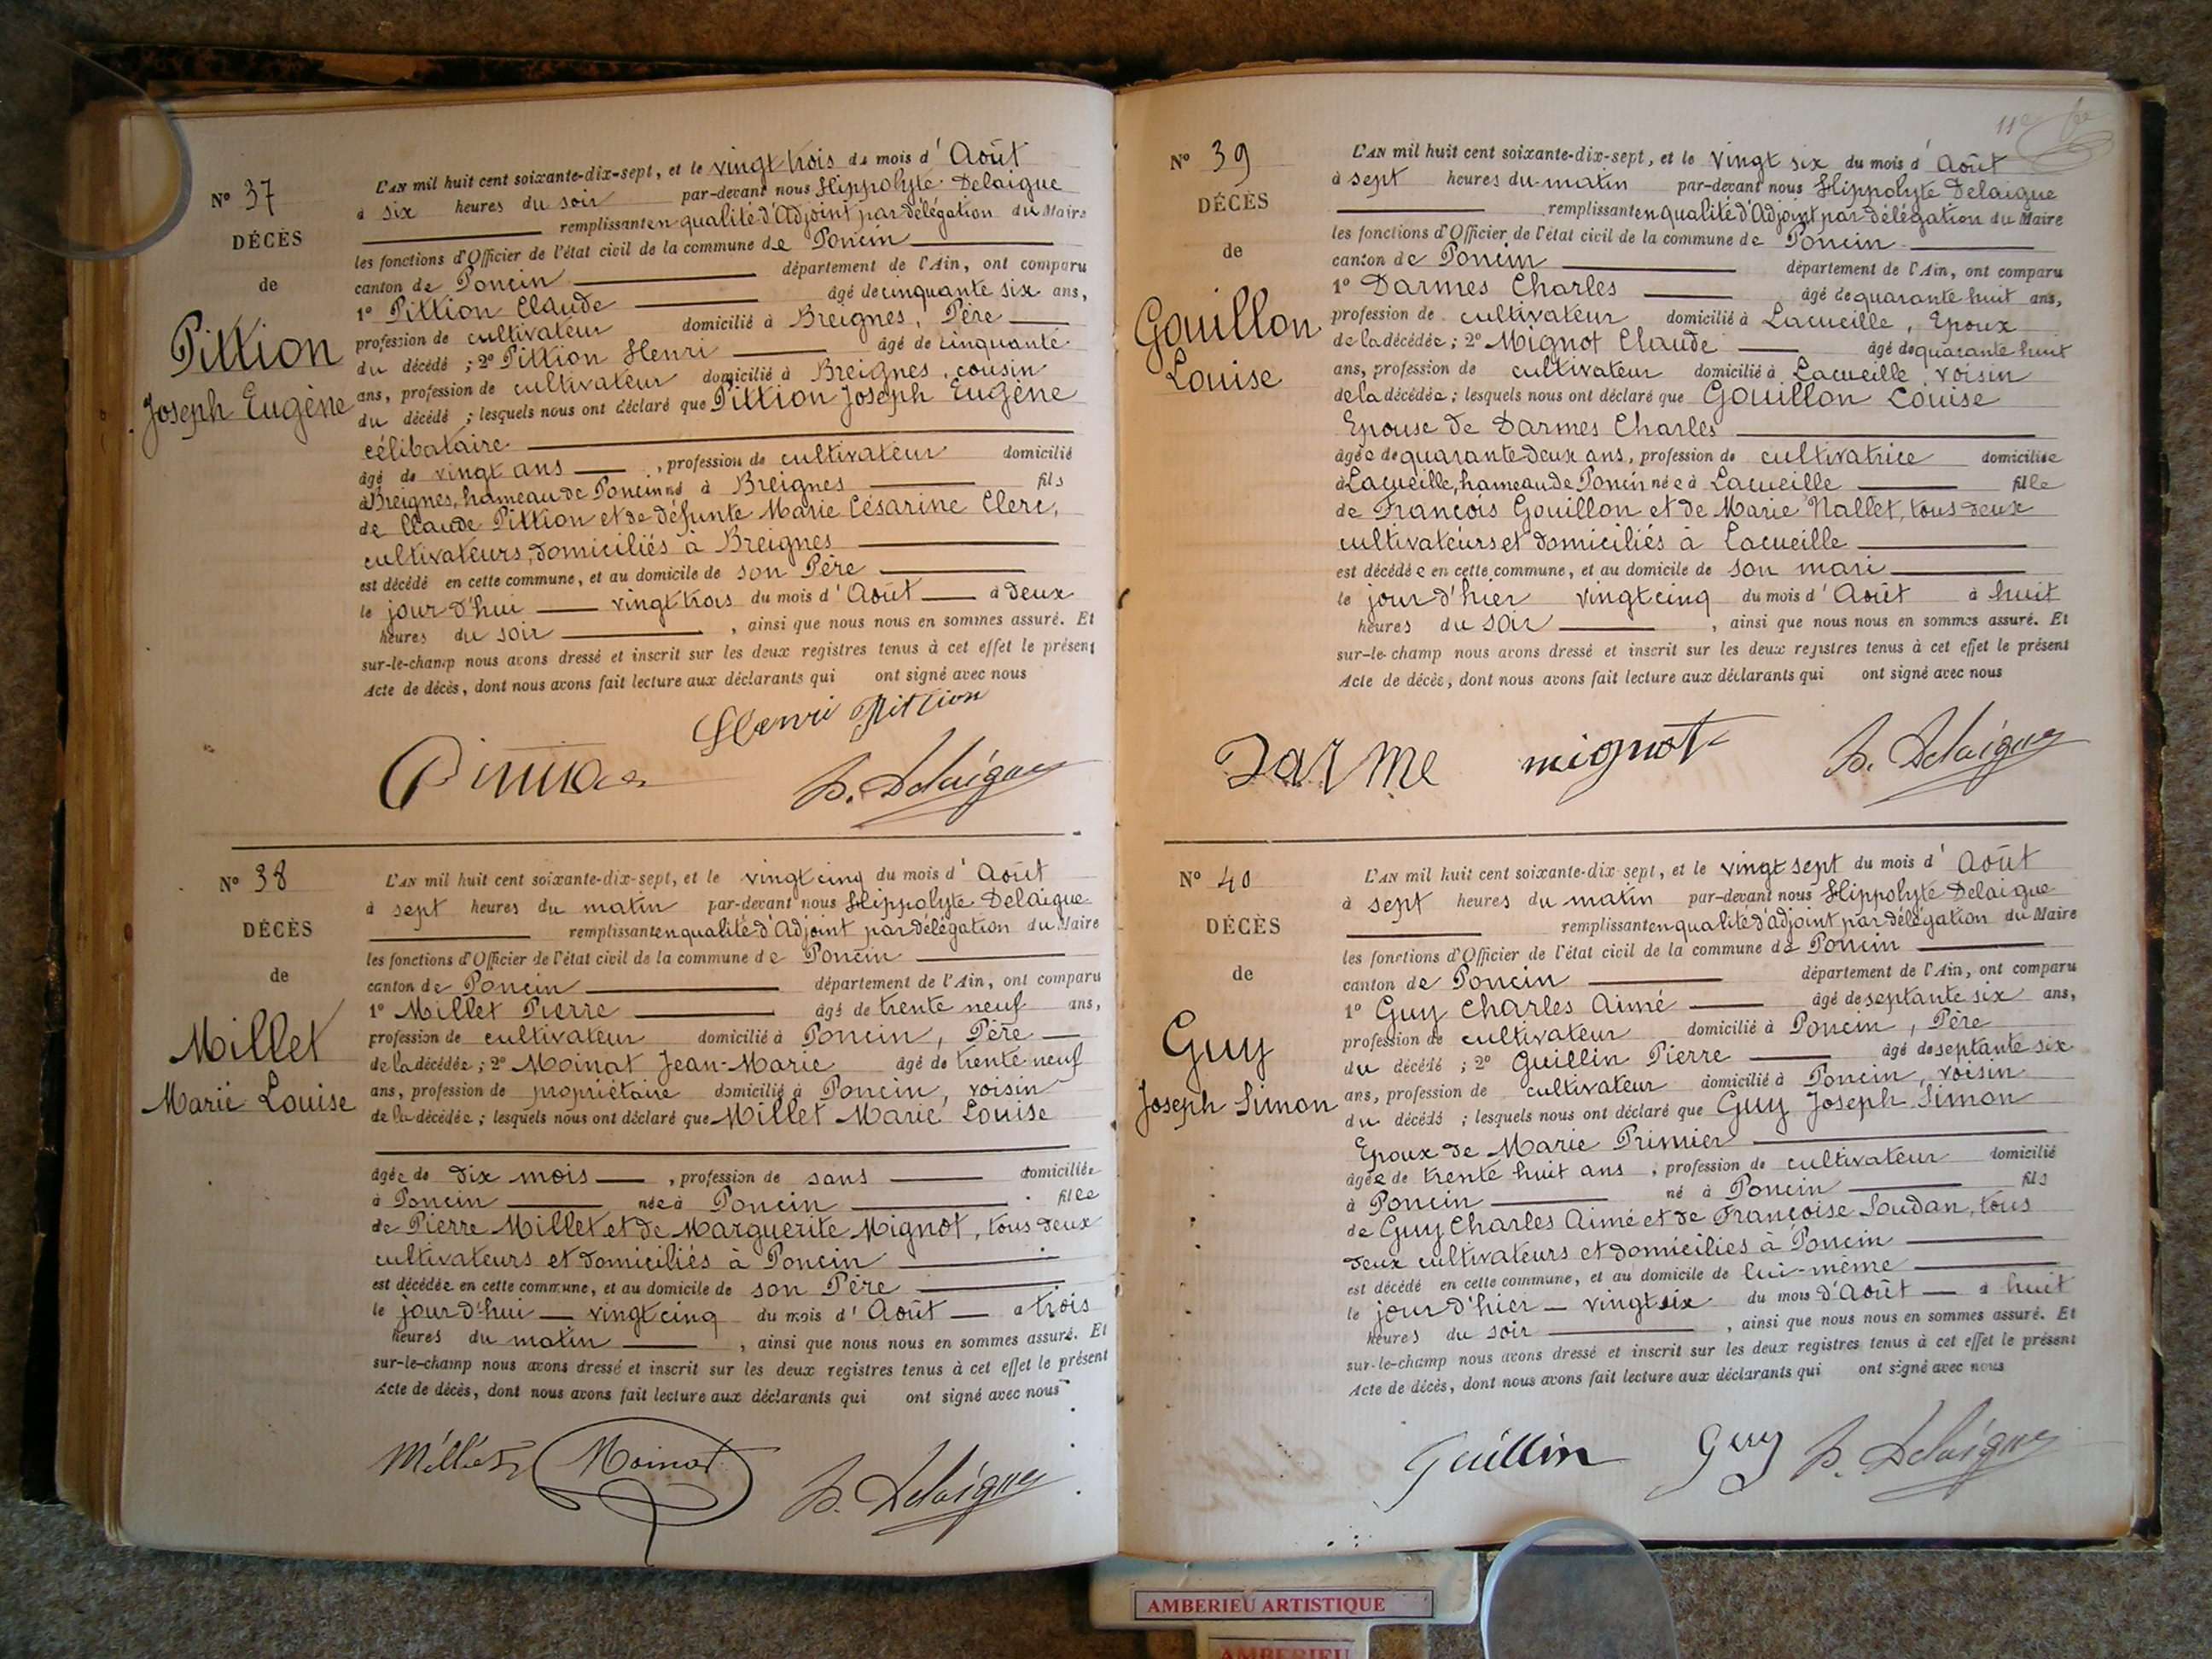 Nº 37
DÉCÈS
de
Pittion
Joseph Eugène
L'AN mil huit cent soixante-dix-sept, et le vingt trois du mois d'Août
à six heures du soir par-devant nous Hippolyte Delaigue
remplissant en qualité d'Adjoint par délégation du Maire
les fonctions d'Officier de l'état civil de la commune de Poncin
canton de Poncin département de l'Ain, ont comparu
1º Pittion Claude âgé de cinquante six ans,
profession de cultivateur domicilié à Breignes, Père
du décédé ; 2º Pittion Henri âgé de cinquante
ans, profession de cultivateur domicilié à Breignes, cousin
du décédé ; lesquels nous ont déclaré que Pittion Joseph Eugène
célibataire
âgé de vingt ans, profession de cultivateur domicilié
à Breignes, hameau de Poncin né à Breignes fils
de Claude Pittion et de défunte Marie Césarine Clerc,
cultivateurs, domiciliés à Breignes
est décédé en cette commune, et au domicile de son Père
le jour d'hui vingt trois du mois d'Août à deux
heures du soir, ainsi que nous nous en sommes assuré. Et
sur-le-champ nous avons dressé et inscrit sur les deux registres tenus à cet effet le présent
Acte de décès, dont nous avons fait lecture aux déclarants qui ont signé avec nous
Henri Pittion
H. Delaigue
Nº 38
DÉCÈS
de
Millet
Marie Louise
L'AN mil huit cent soixante-dix-sept, et le vingt cinq du mois d'Août
à sept heures du matin par-devant nous Hippolyte Delaigue
remplissant en qualité d'Adjoint par délégation du Maire
les fonctions d'Officier de l'état civil de la commune de Poncin
canton de Poncin département de l'Ain, ont comparu
1º Millet Pierre âgé de trente neuf ans,
profession de cultivateur domicilié à Poncin, Père
de la décédée ; 2º Moinat Jean-Marie âgé de trente neuf
ans, profession de propriétaire domicilié à Poncin, voisin
de la décédée ; lesquels nous ont déclaré que Millet Marie Louise
âgée de dix mois, profession de sans domiciliée
à Poncin née à Poncin fille
de Pierre Millet et de Marguerite Mignot, tous deux
cultivateurs et domiciliés à Poncin
est décédée en cette commune, et au domicile de son Père
le jour d'hui vingt cinq du mois d'Août à trois
heures du matin, ainsi que nous nous en sommes assuré. Et
sur-le-champ nous avons dressé et inscrit sur les deux registres tenus à cet effet le présent
Acte de décès, dont nous avons fait lecture aux déclarants qui ont signé avec nous
Millet Moinat H. Delaigue
11e
Nº 39
DÉCÈS
de
Gouillon
Louise
L'AN mil huit cent soixante-dix-sept, et le vingt six du mois d'Août
à sept heures du matin par-devant nous Hippolyte Delaigue
remplissant en qualité d'Adjoint par délégation du Maire
les fonctions d'Officier de l'état civil de la commune de Poncin
canton de Poncin département de l'Ain, ont comparu
1º Darmes Charles âgé de quarante huit ans,
profession de cultivateur domicilié à Lacueille, Epoux
de la décédée ; 2º Mignot Claude âgé de quarante huit
ans, profession de cultivateur domicilié à Lacueille, voisin
de la décédée ; lesquels nous ont déclaré que Gouillon Louise
Epouse de Darmes Charles
âgée de quarante deux ans, profession de cultivatrice domiciliée
à Lacueille, hameau de Poncin née à Lacueille fille
de François Gouillon et de Marie Nallet, tous deux
cultivateurs et domiciliés à Lacueille
est décédée en cette commune, et au domicile de son mari
le jour d'hier vingt cinq du mois d'Août à huit
heures du soir, ainsi que nous nous en sommes assuré. Et
sur-le-champ nous avons dressé et inscrit sur les deux registres tenus à cet effet le présent
Acte de décès, dont nous avons fait lecture aux déclarants qui ont signé avec nous
Darme mignot H. Delaigue
Nº 40
DÉCÈS
de
Guy
Joseph Simon
L'AN mil huit cent soixante-dix-sept, et le vingt sept du mois d'Août
à sept heures du matin par-devant nous Hippolyte Delaigue
remplissant en qualité d'adjoint par délégation du Maire
les fonctions d'Officier de l'état civil de la commune de Poncin
canton de Poncin département de l'Ain, ont comparu
1º Guy Charles Aimé âgé de septante six ans,
profession de cultivateur domicilié à Poncin, Père
du décédé ; 2º Guillin Pierre âgé de septante six
ans, profession de cultivateur domicilié à Poncin, voisin
du décédé ; lesquels nous ont déclaré que Guy Joseph Simon
Epoux de Marie Primier
âgé de trente huit ans, profession de cultivateur domicilié
à Poncin né à Poncin fils
de Guy Charles Aimé et de Françoise Soudan, tous
deux cultivateurs et domiciliés à Poncin
est décédé en cette commune, et au domicile de lui-même
le jour d'hier vingt six du mois d'Août à huit
heures du soir, ainsi que nous nous en sommes assuré. Et
sur-le-champ nous avons dressé et inscrit sur les deux registres tenus à cet effet le présent
Acte de décès, dont nous avons fait lecture aux déclarants qui ont signé avec nous
Guillin Guy H. Delaigue
AMBERIEU ARTISTIQUE
AMBERIEU